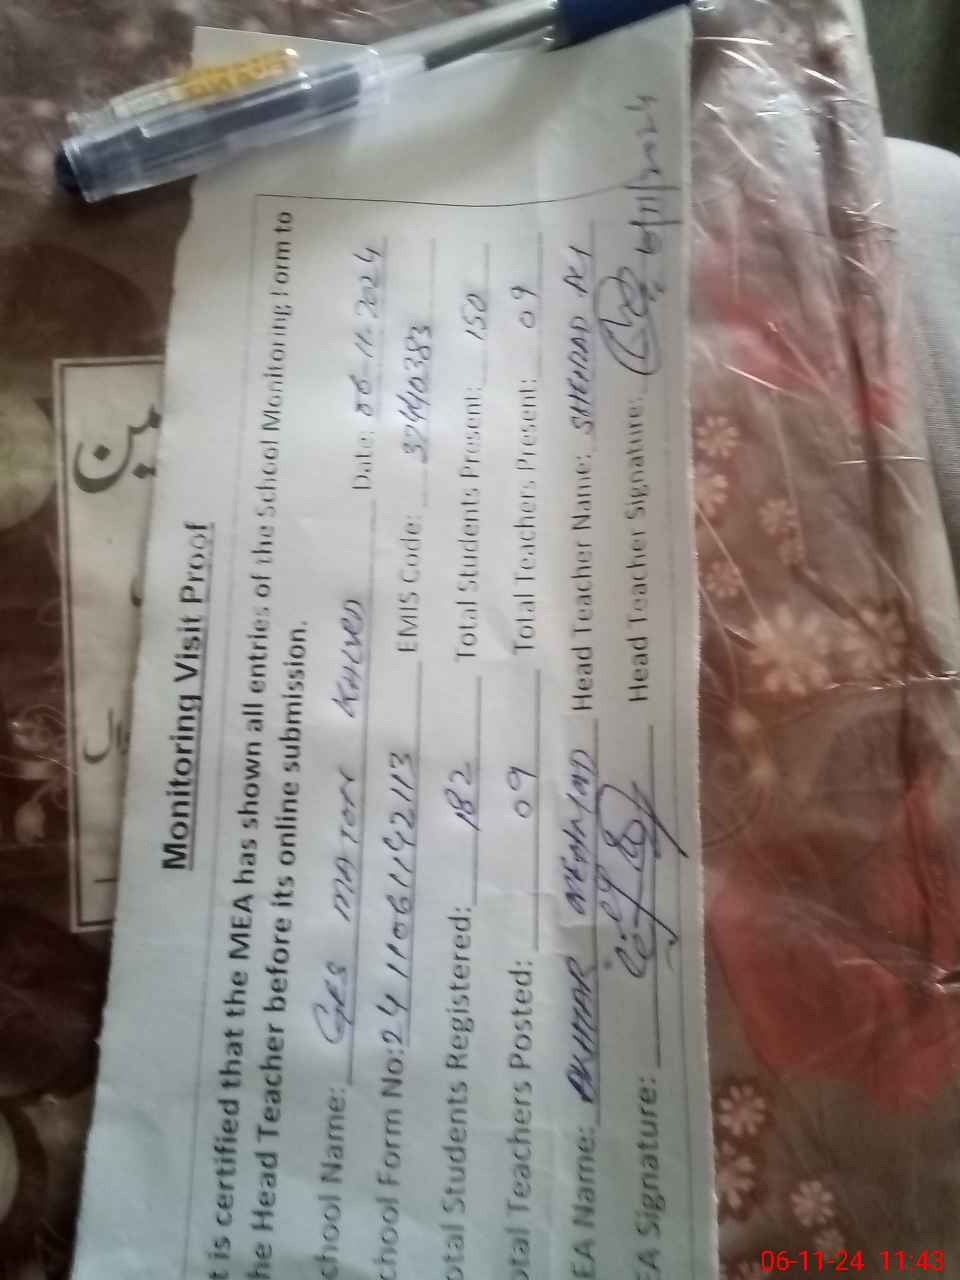 Monitoring Visit Proof
t is certified that the MEA has shown all entries of the School Monitoring Form to
he Head Teacher before its online submission.
chool Name: GES MATORE KHURD Date: 06-11-2024
chool Form No: 2411061142113 EMIS Code: 32440383
otal Students Registered: 182 Total Students Present: 150
otal Teachers Posted: 09 Total Teachers Present: 09
EA Name: AKHTAR Head Teacher Name: SHEHZAD ALI
EA Signature: Head Teacher Signature: 6/11/2024
06-11-24 11:43